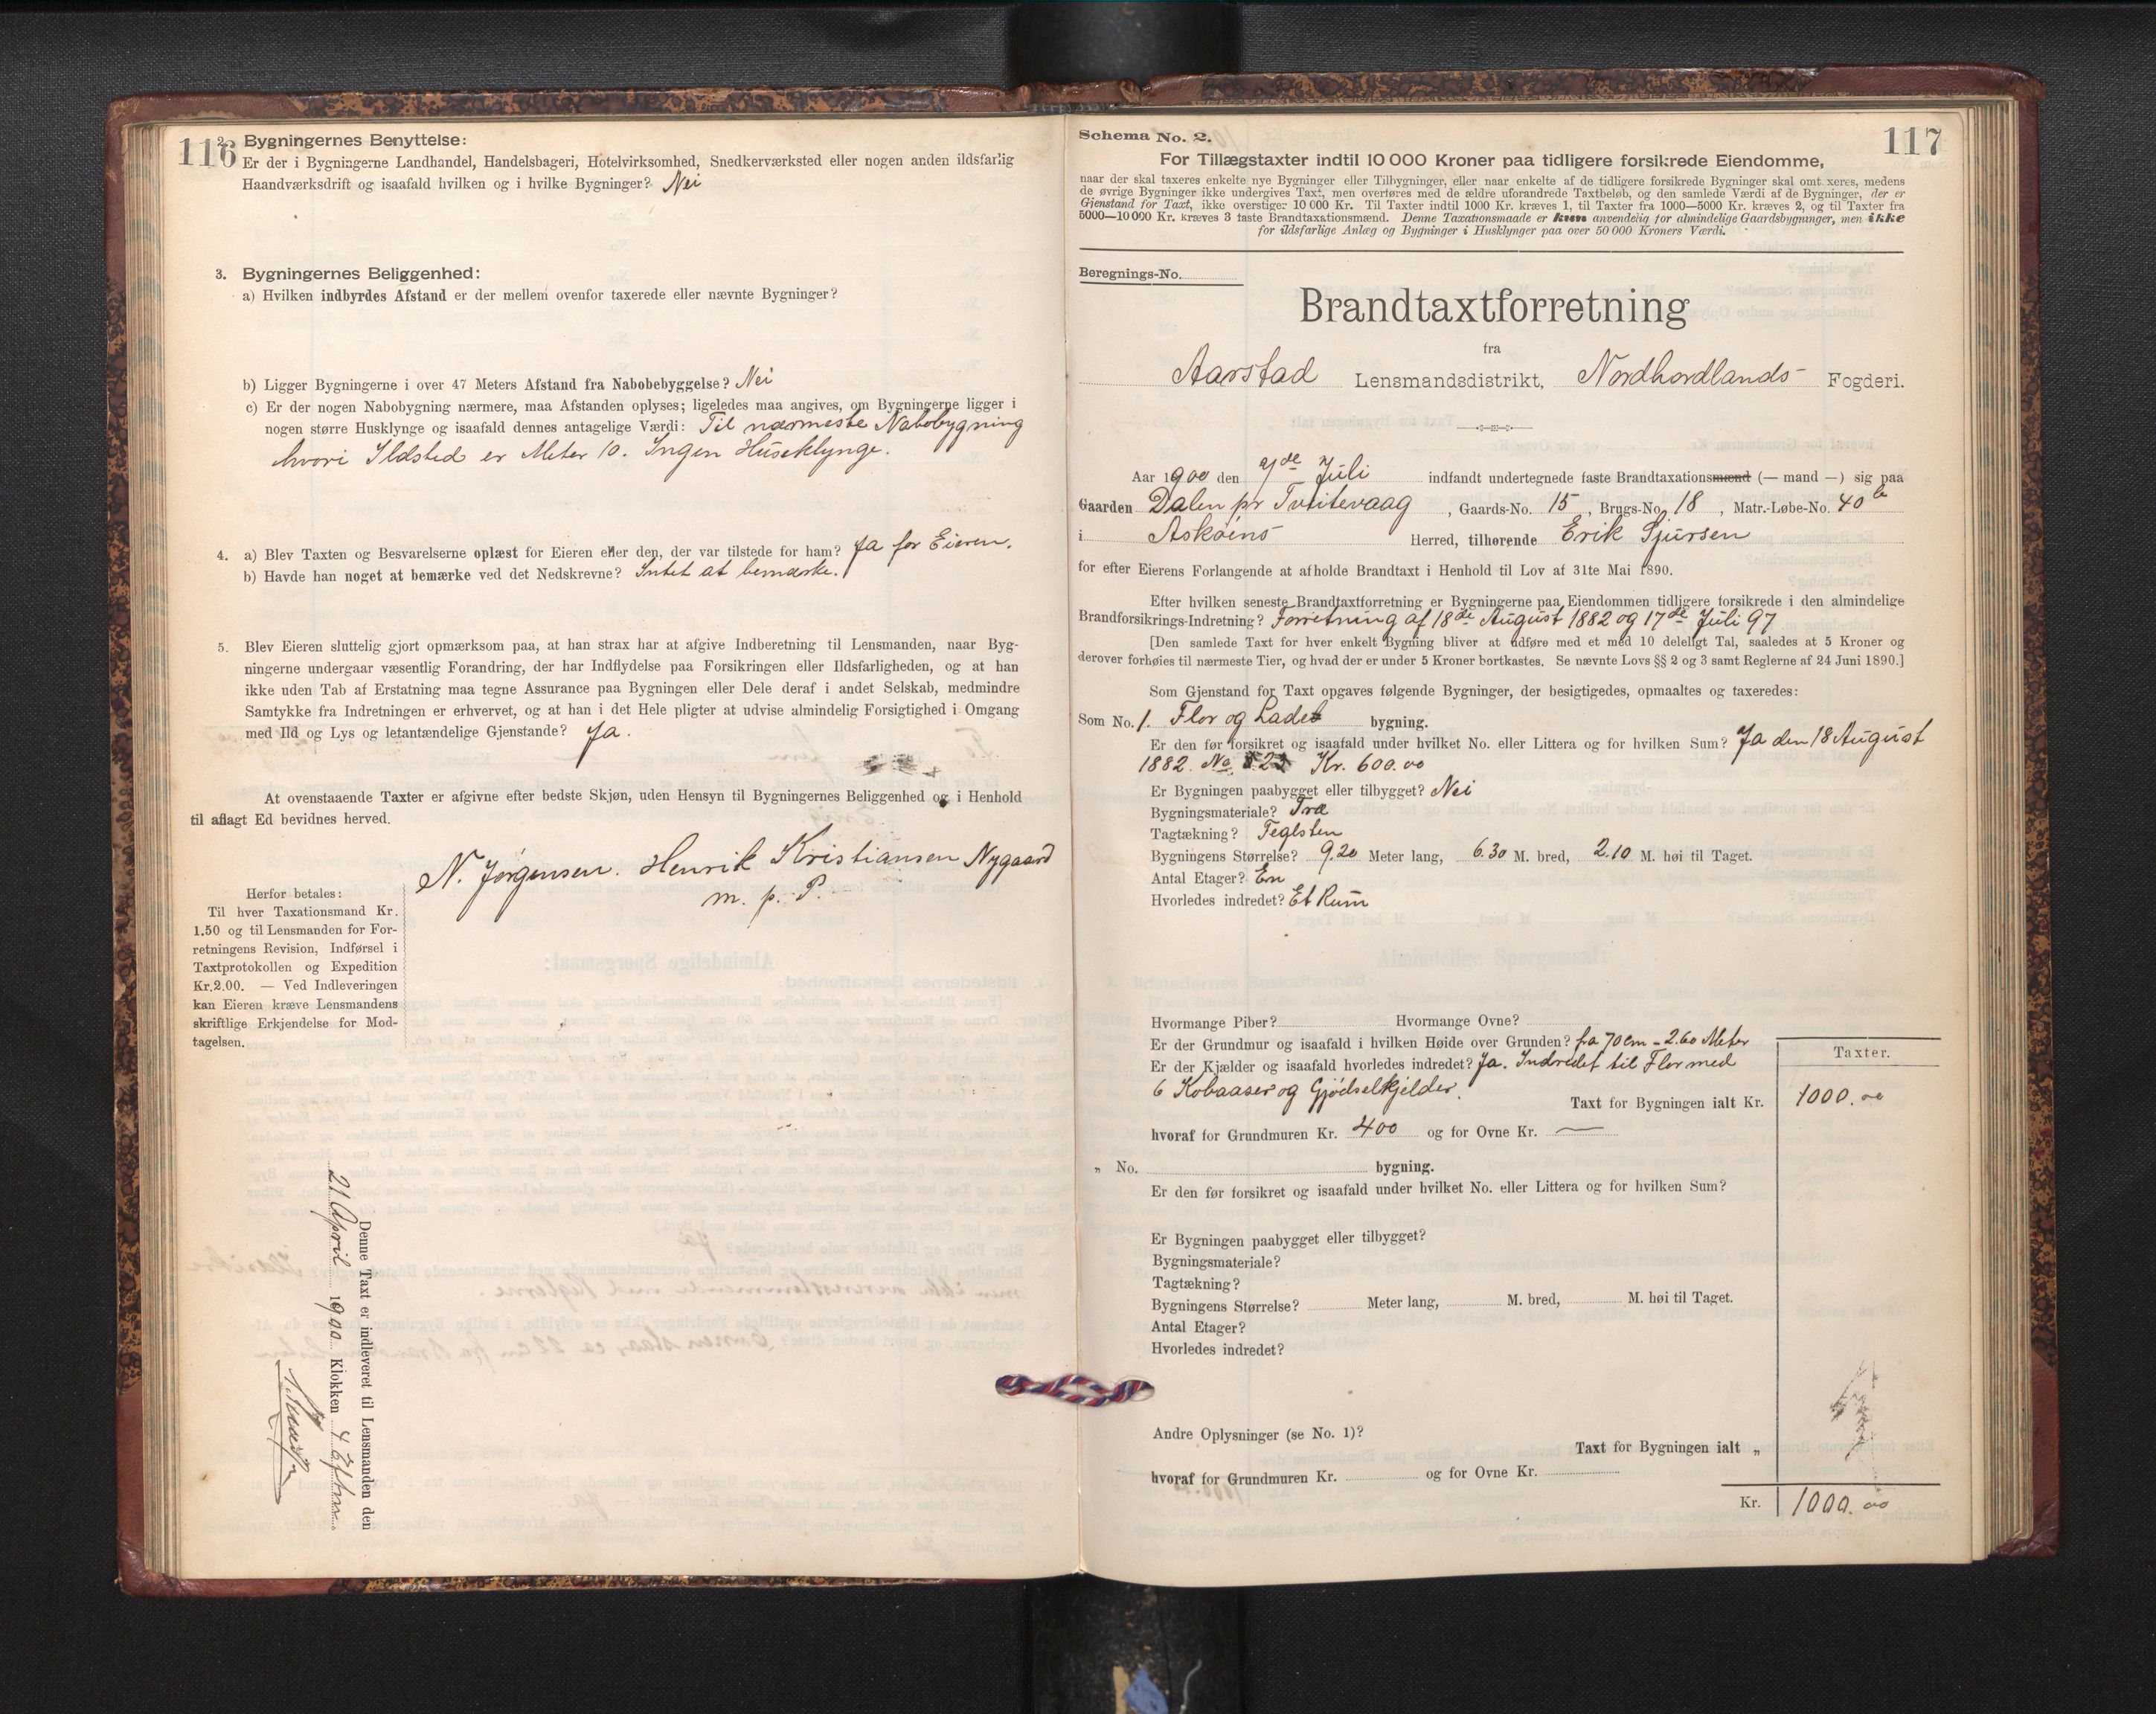 116
2. Bygningernes Benyttelse:
Er der i Bygningerne Landhandel, Handelsbageri, Hotelvirksomhed, Snedkerværksted eller nogen anden ildsfarlig
Haandværksdrift og isaafald hvilken og i hvilke Bygninger? Nei
3. Bygningernes Beliggenhed:
a) Hvilken indbyrdes Afstand er der mellem ovenfor taxerede eller nævnte Bygninger?
b) Ligger Bygningerne i over 47 Meters Afstand fra Nabobebyggelse? Nei
c) Er der nogen Nabobygning nærmere, maa Afstanden oplyses; ligeledes maa angives, om Bygningerne ligger i
nogen større Husklynge og isaafald dennes antagelige Værdi: Til nærmeste Nabobygning
hvori Ildsted er Meter 10. Ingen Huseklynge.
4. a) Blev Taxten og Besvarelserne oplæst for Eieren eller den, der var tilstede for ham? Ja for Eieren.
b) Havde han noget at bemærke ved det Nedskrevne? Intet at bemærke.
5. Blev Eieren sluttelig gjort opmærksom paa, at han strax har at afgive Indberetning til Lensmanden, naar Byg-
ningerne undergaar væsentlig Forandring, der har Indflydelse paa Forsikringen eller Ildsfarligheden, og at han
ikke uden Tab af Erstatning maa tegne Assurance paa Bygningen eller Dele deraf i andet Selskab, medmindre
Samtykke fra Indretningen er erhvervet, og at han i det Hele pligter at udvise almindelig Forsigtighed i Omgang
med Ild og Lys og letantændelige Gjenstande? Ja.
At ovenstaaende Taxter er afgivne efter bedste Skjøn, uden Hensyn til Bygningernes Beliggenhed og i Henhold
til aflagt Ed bevidnes herved.
N. Jørgensen. Henrik Kristiansen Nygaard
m. p. P.
Herfor betales:
Til hver Taxationsmand Kr.
1.50 og til Lensmanden for For-
retningens Revision, Indførsel i
Taxtprotokollen og Expedition
Kr. 2.00. — Ved Indleveringen
kan Eieren kræve Lensmandens
skriftlige Erkjendelse for Mod-
tagelsen.
Denne Taxt er indleveret til Lensmanden den
21 April 1900 Klokken 4 Eftm.
117
Schema No. 2.
For Tillægstaxter indtil 10 000 Kroner paa tidligere forsikrede Eiendomme,
naar der skal taxeres enkelte nye Bygninger eller Tilbygninger, eller naar enkelte af de tidligere forsikrede Bygninger skal omtaxeres, medens
de øvrige Bygninger ikke undergives Taxt, men overføres med de ældre uforandrede Taxtbeløb, og den samlede Værdi af de Bygninger, der er
Gjenstand for Taxt, ikke overstiger 10 000 Kr. Til Taxter indtil 1000 Kr. kræves 1, til Taxter fra 1000—5000 Kr. kræves 2, og til Taxter fra
5000—10 000 Kr. kræves 3 faste Brandtaxationsmænd. Denne Taxationsmaade er kun anvendelig for almindelige Gaardsbygninger, men ikke
for ildsfarlige Anlæg og Bygninger i Husklynger paa over 50 000 Kroners Værdi.
Beregnings-No.
Brandtaxtforretning
fra
Aarstad Lensmandsdistrikt, Nordhordlands Fogderi.
Aar 1900 den 7de Juli indfandt undertegnede faste Brandtaxationsmænd (— mand —) sig paa
Gaarden Dalen pr Tveitevaag, Gaards-No. 15, Brugs-No. 18, Matr.-Løbe-No. 40 b
i Askøens Herred, tilhørende Erik Sjursen
for efter Eierens Forlangende at afholde Brandtaxt i Henhold til Lov af 31te Mai 1890.
Efter hvilken seneste Brandtaxtforretning er Bygningerne paa Eiendommen tidligere forsikrede i den almindelige
Brandforsikrings-Indretning? Forretning af 18de August 1882 og 17de Juli 97
[Den samlede Taxt for hver enkelt Bygning bliver at udføre med et med 10 deleligt Tal, saaledes at 5 Kroner og
derover forhøies til nærmeste Tier, og hvad der er under 5 Kroner bortkastes. Se nævnte Lovs §§ 2 og 3 samt Reglerne af 24 Juni 1890.]
Som Gjenstand for Taxt opgaves følgende Bygninger, der besigtigedes, opmaaltes og taxeredes:
Som No. 1. Flor og Lade bygning.
Er den før forsikret og isaafald under hvilket No. eller Littera og for hvilken Sum? Ja den 18 August
1882. No. 523 Kr. 600.00
Er Bygningen paabygget eller tilbygget? Nei
Bygningsmateriale? Træ
Tagtækning? Teglsten
Bygningens Størrelse? 9.20 Meter lang, 6.30 M. bred, 2.10 M. høi til Taget.
Antal Etager? En
Hvorledes indredet? Et Rum
Hvormange Piber? Hvormange Ovne?
Er der Grundmur og isaafald i hvilken Høide over Grunden? fra 70 cm - 2.60 Meter
Er der Kjælder og isaafald hvorledes indredet? Ja. Indredet til Flor med
6 Kobaaser og Gjødselkjelder.
Taxter.
Taxt for Bygningen ialt Kr. 1000.00
hvoraf for Grundmuren Kr. 400 og for Ovne Kr. —
„ No. bygning.
Er den før forsikret og isaafald under hvilket No. eller Littera og for hvilken Sum?
Er Bygningen paabygget eller tilbygget?
Bygningsmateriale?
Tagtækning?
Bygningens Størrelse? Meter lang, M. bred, M. høi til Taget.
Antal Etager?
Hvorledes indredet?
Andre Oplysninger (se No. 1)?
Taxt for Bygningen ialt „
hvoraf for Grundmuren Kr. og for Ovne Kr.
Kr. 1000.00